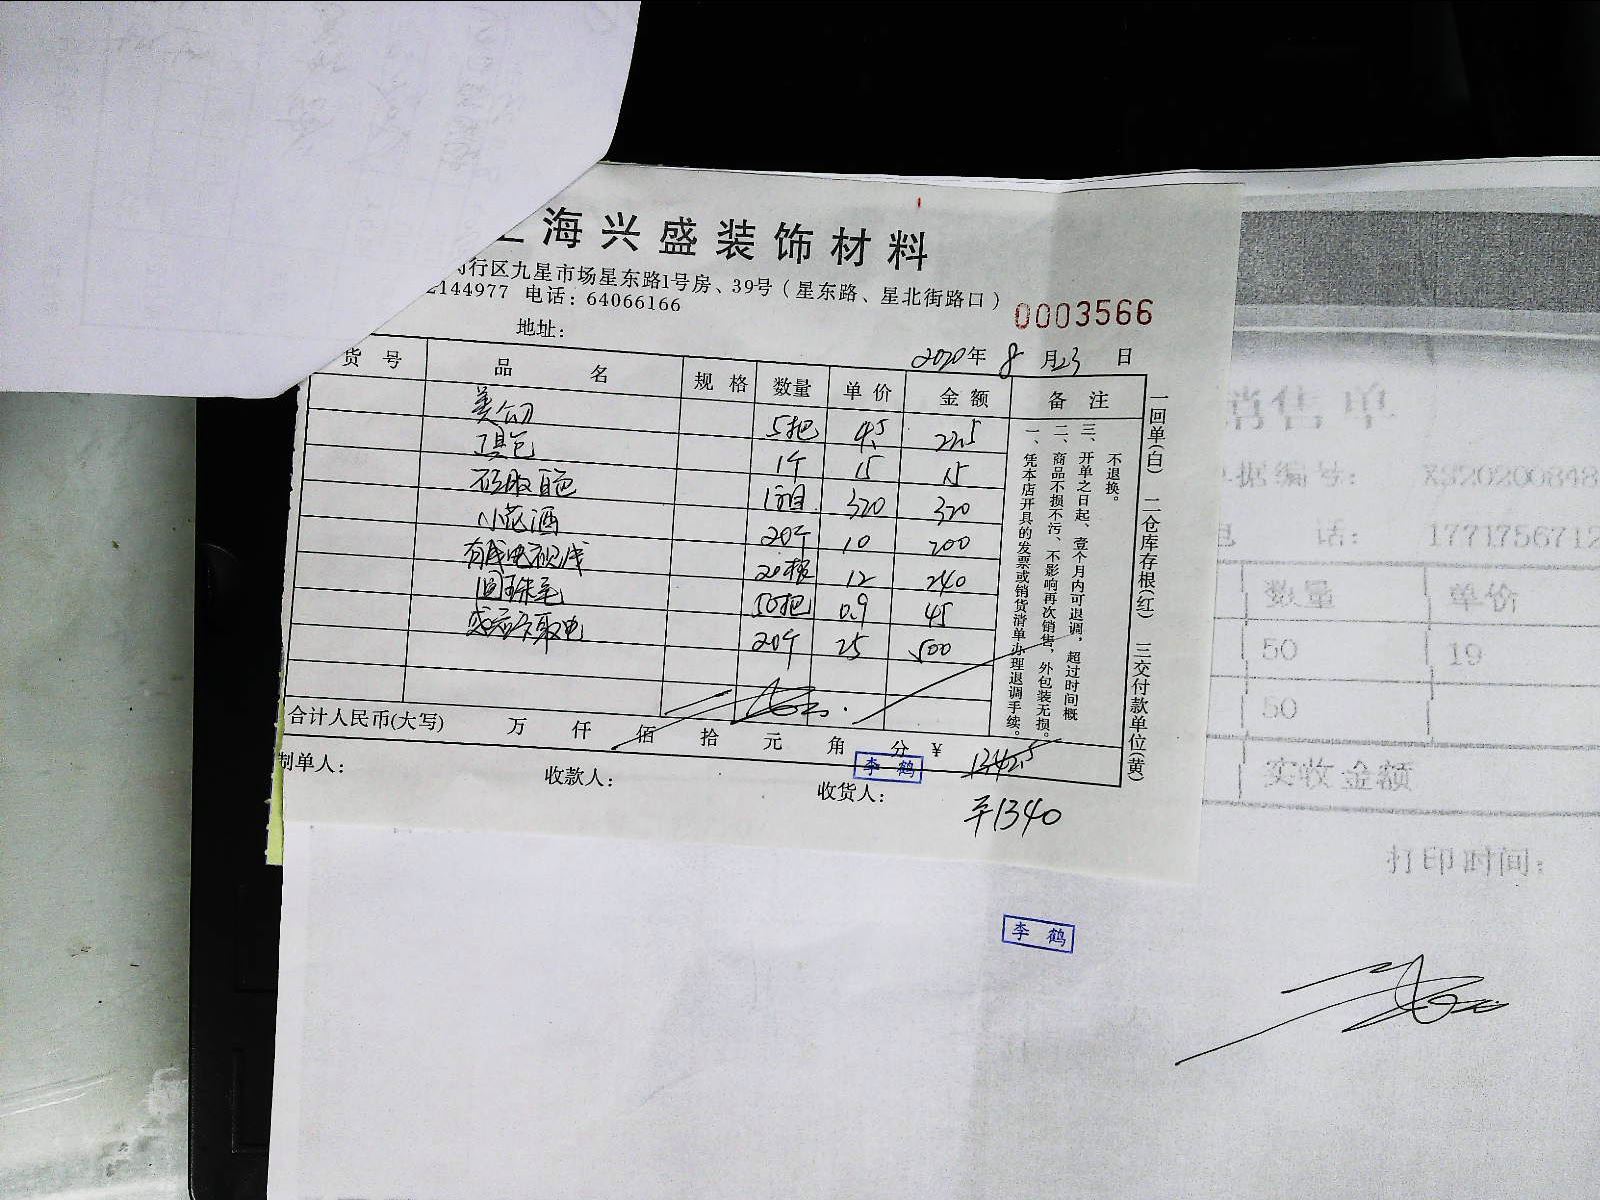 海兴盛装饰材料
行区九星市场星东路1号房、39号（星东路、星北街路口）
2144977 电话：64066166
0003566
地址：
2020年 8 月23 日
货号 品名 规格 数量 单价 金额 备注
美工刀 5把 4.5 22.5
工具包 1个 15 15
320 320
20个 10 200
有线电视线 20根 12 240
50把 0.9 45
感应卡取电 20个 25 500
合计人民币(大写) 万 仟 佰 拾 元 角 分 ¥ 1342.5
制单人： 收款人： 收货人：
李鹤
平1340
一、凭本店开具的发票或销货清单办理退调手续。
二、商品不损不污、不影响再次销售，外包装无损。
三、开单之日起、壹个月内可退调，超过时间概
不退换。
一回单(白) 二仓库存根(红) 三交付款单位(黄)
销售单
据编号： XS20200848
话： 1771756712
数量 单价
50 19
50
实收金额
打印时间：
李鹤